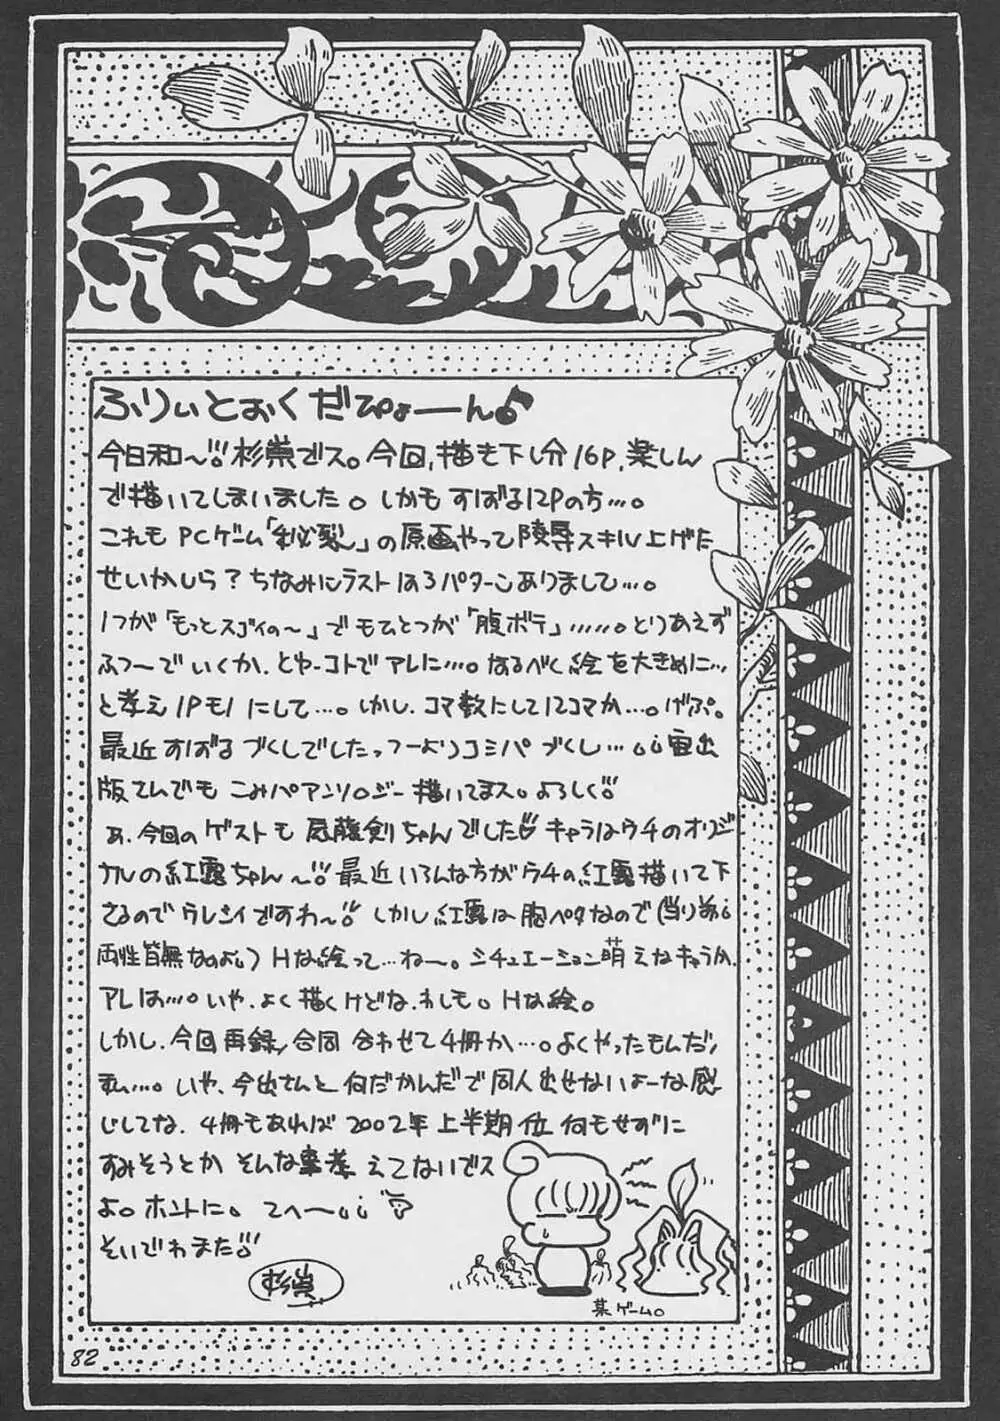 ふりぃとぉくだぴょーん♪
今日和〜!! 杉崇でス。今回,描き下し分16P,楽しん
で描いてしまいました。しかもすばる12Pの方…。
これもPCゲーム「」の原画やって陵辱スキル上げた
せいかしら？ちなみにラストは3パターンありまして…。
1つが「もっとスゴイの〜」でもひとつが「腹ボテ」……。とりあえず
ふつーでいくか、とゆーコトでアレに…。なるべく絵を大きめに…
と考え1Pモノにして…。しかし、コマ数にして12コマか…。げぷ。
最近すばるづくしでしたっつーよりコミパづくし…
版さんでもこみパアンソロジー描いてます。よろしく!!
あ、今回のゲストも 藤剣ちゃんでした♡ キャラはウチのオリジ
ナルの紅露ちゃん〜!! 最近いろんな方がウチの紅露描いて下
さるのでウレシイですわ〜!! しかし紅露は胸ペタなので(当り前
両性皆無なのよ) Hな絵って…ね〜。シチュエーション萌えなキャラか、
アレは…。いや、よく描くけどな、わしも。Hな絵。
しかし、今回再録/合同合わせて4冊か…。よくやったもんだ、
私…。いや、今出さんと何だかんだで同人出せないよーな感
じしてな、4冊もあれば2002年上半期位何もせずに
すみそうとかそんな事考えてないでス
よ。ホントに。てへ〜
そいでわまた!!
杉崇
某ゲーム。
82